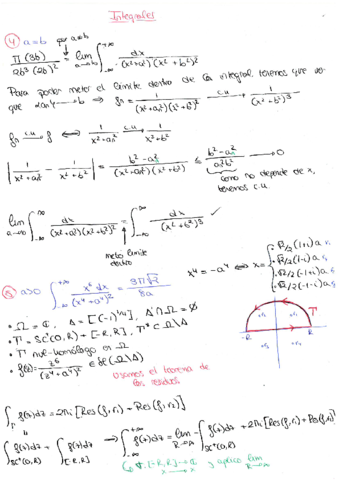 Integrales
④ a=b por a≠b
π(3b) / 2b³(2b)² = lim a→b ∫_{-∞}^{+∞} dx / (x²+a²)(x²+b²)²
Para poder meter el límite dentro de la integral tenemos que ver
que αn → b ⇒ fn = 1/(x²+an²)(x²+b²)² →c.u. 1/(x²+b²)³
fn →c.u. f ⟺ 1/(x²+an²) →c.u. 1/(x²+b²)
| 1/(x²+an²) − 1/(x²+b²) | = b²−an² / (x²+an²)(x²+b²) ≤ b²−an² / an²b² → 0
como no depende de x,
tenemos c.u.
lim a→b ∫_{-∞}^{∞} dx / (x²+a²)(x²+b²)² = ∫_{-∞}^{∞} dx / (x²+b²)³ ✓
meto límite
dentro
⑤ a>0 ∫_{-∞}^{+∞} x⁶ dx / (x⁴+a⁴)² = 3π√2 / 8a
x⁴ = −a⁴ ⟺ x =
√2/2 (1+i) a
√2/2 (1−i) a
√2/2 (−1+i) a
√2/2 (−1−i) a
• Ω = ℂ, A = [(−1)^{1/4}], A'∩Ω = ∅
• Γ = SC⁺(0,R) + [−R,R], Γ* ⊂ Ω\A
• Γ nul-homólogo en Ω
• f(z) = z⁶ / (z⁴+a⁴)² ∈ ℋ(Ω\A)
Usamos el teorema de
los residuos
−R R Γ
∫_Γ f(z)dz = 2πi [Res(f,r₁) + Res(f,r₂)]
∫_{SC⁺(0,R)} f(z)dz + ∫_{[−R,R]} f(z)dz → ∫_{-∞}^{+∞} f(z)dz = lim R→∞ −∫_{SC⁺(0,R)} f(z)dz + 2πi [Res(f,r₁) + Res(f,r₂)]
[−R,R] → ℂ y aplico lim R→∞
x → x